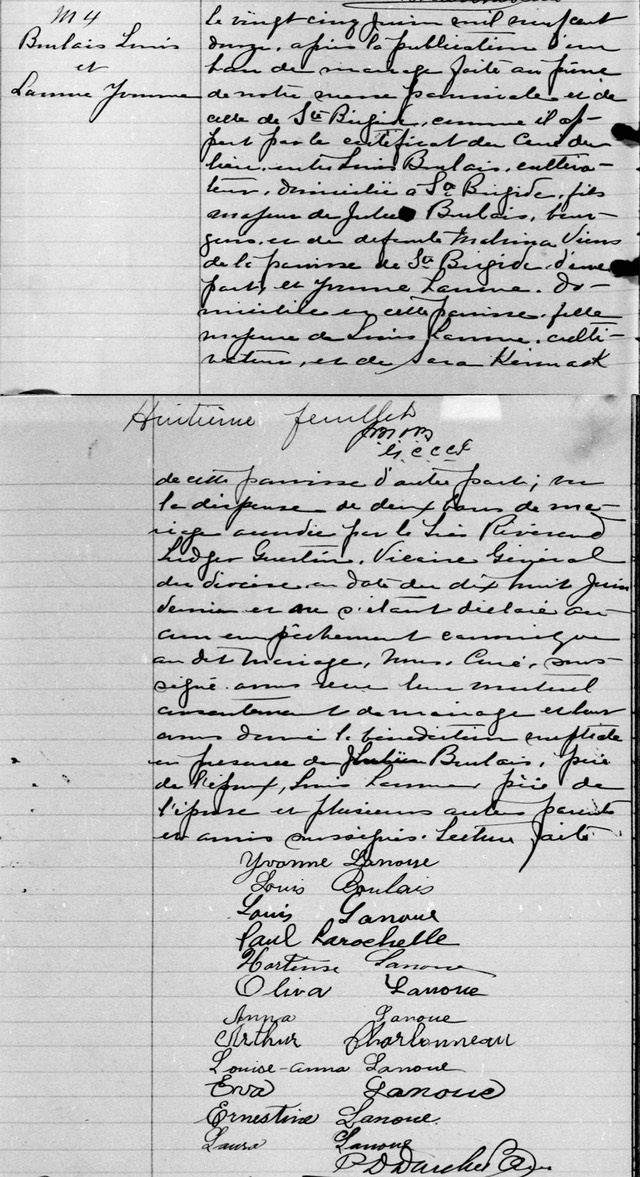 M 4
Boulais Louis
et
Lanoue Yvonne
Le vingt cinq Juin mil neuf cent
douze, après la publication d'un
ban de mariage faite au prône
de notre messe paroissiale et de
celle de Ste Brigide, comme il ap-
pert par le certificat du Curé du
lieu, entre Louis Boulais, cultiva-
teur, domicilié à Ste Brigide, fils
majeur de Boulais, bour-
geois, et de défunte Malvina Viens
de la paroisse de Ste Brigide, d'une
part, et Yvonne Lanoue, do-
miciliée en cette paroisse, fille
majeure de Louis Lanoue, culti-
vateur, et de Sara
Huitième feuillet
de cette paroisse d'autre part; vu
la dispense de deux bans de ma-
riage accordée par le Très Révérend
Ledger Guertin, Vicaire Général
du diocèse en date du dix huit Juin
dernier et ne s'étant déclaré au-
cun empêchement canonique
au dit mariage, Nous, Curé, sous-
signé avons reçu leur mutuel
consentement de mariage et leur
avons donné la bénédiction nuptiale
en présence de Boulais, père
de l'époux, Louis Lanoue, père de
l'épouse et plusieurs autres parents
et amis soussignés. Lecture faite
Yvonne Lanoue
Louis Boulais
Louis Lanoue
Paul Larochelle
Hortense Lanoue
Oliva Lanoue
Anna Lanoue
Arthur Charbonneau
Louise-anna Lanoue
Eva Lanoue
Ernestine Lanoue
Laura Lanoue